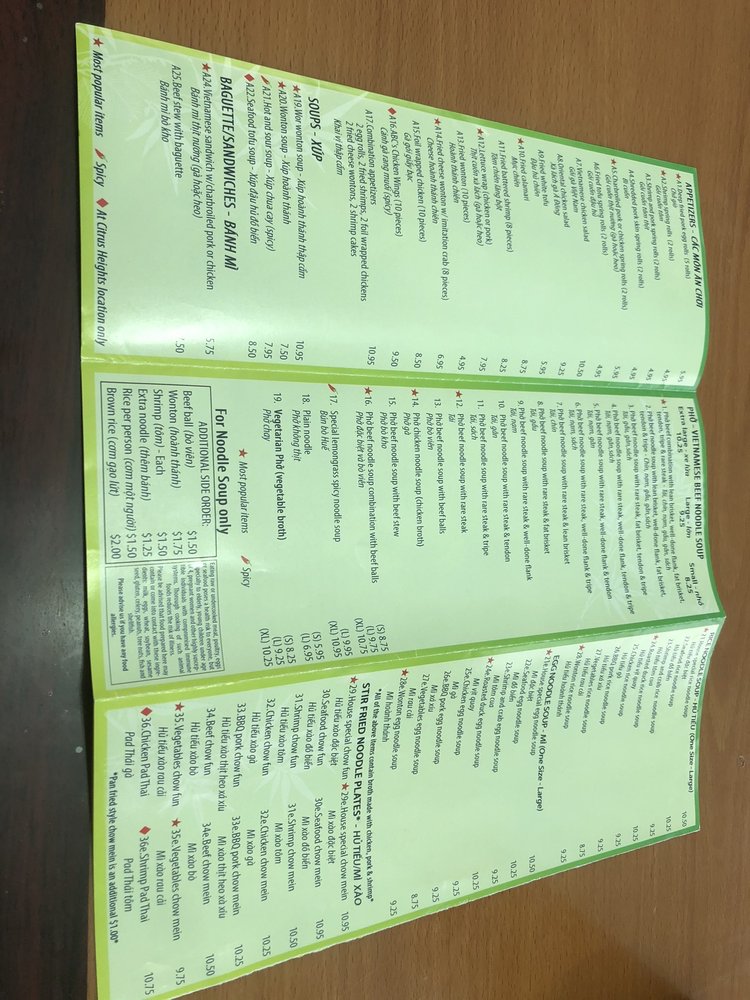 APPETIZERS - CÁC MÓN ĂN CHƠI
A2.Shrimp spring rolls (2 rolls) 4.95
Gỏi cuốn tôm
A3.Shrimp and pork spring rolls (2 rolls) 4.95
Gỏi cuốn tôm thịt
A4.Shredded pork skin spring rolls (2 rolls) 4.95
Bì cuốn
★A5.Charbroiled pork or chicken spring rolls (2 rolls) 5.95
Gỏi cuốn thịt nướng (gà hoặc heo)
A6.Fried tofu spring rolls (2 rolls) 4.95
Gỏi cuốn đậu hủ
A7.Vietnamese chicken salad 10.50
Gỏi gà Việt Nam
A8.Oriental chicken salad 9.25
Xà lách gà Á Đông
A9.Fried white tofu 5.95
Đậu hủ chiên
★A10.Fried calamari 8.75
Mực chiên
A11.Fried battered shrimp (8 pieces) 8.25
Tôm chiên lăng bột
★A12.Lettuce wrap (chicken or pork) 7.95
Thịt cuốn xà lách (gà hoặc heo)
A13.Fried wonton (10 pieces) 4.95
Hoành thánh chiên
★A14.Fried cheese wonton w/ imitation crab (8 pieces) 6.95
Cheese hoành thánh chiên
A15.Foil wrapped chicken (10 pieces) 8.50
Gà gói giấy bạc
♦A16.ABC's Chicken Wings (10 pieces) 9.50
Cánh gà rang muối (spicy)
A17.Combination appetizers 10.95
2 egg rolls, 2 fried shrimps, 2 foil wrapped chickens
2 fried cheese wontons, 2 shrimp cakes
Khai vị thập cẩm
SOUPS - XÚP
★A19.Wor wonton soup - Xúp hoành thánh thập cẩm 10.95
★A20.Wonton soup - Xúp hoành thánh 7.50
A21.Hot and sour soup - Xúp chua cay (spicy) 7.95
♦A22.Seafood tofu soup - Xúp đậu hủ đồ biển 8.50
BAGUETTE/SANDWICHES - BÁNH MÌ
★A24.Vietnamese sandwich w/ charbroiled pork or chicken 5.75
Bánh mì thịt nướng (gà hoặc heo)
A25.Beef stew with baguette .50
Bánh mì bò kho
★ Most popular items Spicy ♦ At Citrus Heights location only
PHỞ - VIETNAMESE BEEF NOODLE SOUP
Extra large - xe lửa 10.25 Large - lớn 9.25 Small - nhỏ 8.25
★1. Phở beef combination with lean brisket, well-done flank, fat brisket,
tendon, tripe & rare steak - Tái, chín, nạm, gầu, gân, sách
2. Phở beef noodle soup with lean brisket, well-done flank, fat brisket,
tendon & tripe - Chín, nạm, gầu, gân, sách
3. Phở beef noodle soup with rare steak, fat brisket, tendon & tripe
Tái, gầu, gân, sách
4. Phở beef noodle soup with rare steak, well-done flank, tendon & tripe
Tái, nạm, gân, sách
5. Phở beef noodle soup with rare steak, well-done flank & tendon
6. Phở beef noodle soup with rare steak, well-done flank & tripe
7. Phở beef noodle soup with rare steak & well-done flank
Tái, nạm
8. Phở beef noodle soup with rare steak & lean brisket
Tái, chín
9. Phở beef noodle soup with rare steak & fat brisket
10. Phở beef noodle soup with rare steak & tendon
Tái, gân
11. Phở beef noodle soup with rare steak & tripe
Tái, sách
★12. Phở beef noodle soup with rare steak
Tái
13. Phở beef noodle soup with beef balls
Phở bò viên
★14. Phở chicken noodle soup (chicken broth)
Phở gà
15. Phở beef noodle soup with beef stew
Phở bò kho
★16. Phở beef noodle soup combination with beef balls
Phở đặc biệt và bò viên
17. Special lemongrass spicy noodle soup (S) 8.75
Bún bò Huế (L) 9.75
(XL) 10.75
18. Plain noodle (S) 5.95
Phở không thịt (L) 6.95
19. Vegetarian Phở (vegetable broth) (S) 8.25
Phở chay (L) 9.25
(XL) 10.25
★ Most popular items Spicy
For Noodle Soup only
ADDITIONAL SIDE ORDER:
Beef ball (bò viên) $1.50
Wonton (hoành thánh) $1.75
Shrimp (tôm) - Each $1.50
Extra noodle (thêm bánh) $1.25
Rice per person (cơm một người) $1.50
Brown rice (cơm gạo lứt) $2.00
Please advise us if you have any food
allergies.
EGG NOODLE SOUP - MÌ (One Size - Large)
★21e.House special egg noodle soup 10.50
Mì đặc biệt
22e.Seafood egg noodle soup 10.25
Mì đồ biển
23e.Shrimp and crab egg noodle soup 9.25
Mì tôm cua
★24e.Roasted duck egg noodle soup 10.25
Mì vịt quay
25e.Chicken egg noodle soup 9.25
Mì gà
26e.BBQ pork egg noodle soup 9.25
Mì xá xíu
27e.Vegetables egg noodle soup 8.75
Mì rau cải
★28e.Wonton egg noodle soup 9.25
Mì hoành thánh
*All of the above items contain broth made with chicken, pork & shrimp*
STIR FRIED NOODLE PLATES* - HỦ TIẾU/MÌ XÀO
★29.House special chow fun ★29e.House special chow mein 10.95
Hủ tiếu xào đặc biệt Mì xào đặc biệt
30.Seafood chow fun 30e.Seafood chow mein 10.95
Hủ tiếu xào đồ biển Mì xào đồ biển
31.Shrimp chow fun 31e.Shrimp chow mein 10.50
Hủ tiếu xào tôm Mì xào tôm
32.Chicken chow fun 32e.Chicken chow mein 10.25
Hủ tiếu xào gà Mì xào gà
33.BBQ pork chow fun 33e.BBQ pork chow mein 10.25
Hủ tiếu xào thịt heo xá xíu Mì xào thịt heo xá xíu
34.Beef chow fun 34e.Beef chow mein 10.50
Hủ tiếu xào bò Mì xào bò
★35.Vegetables chow fun ★35e.Vegetables chow mein 9.75
Hủ tiếu xào rau cải Mì xào rau cải
♦36.Chicken Pad Thai ♦36e.Shrimp Pad Thai 10.75
Pad Thái gà Pad Thái tôm
*Pan fried style chow mein is an additional $1.00*